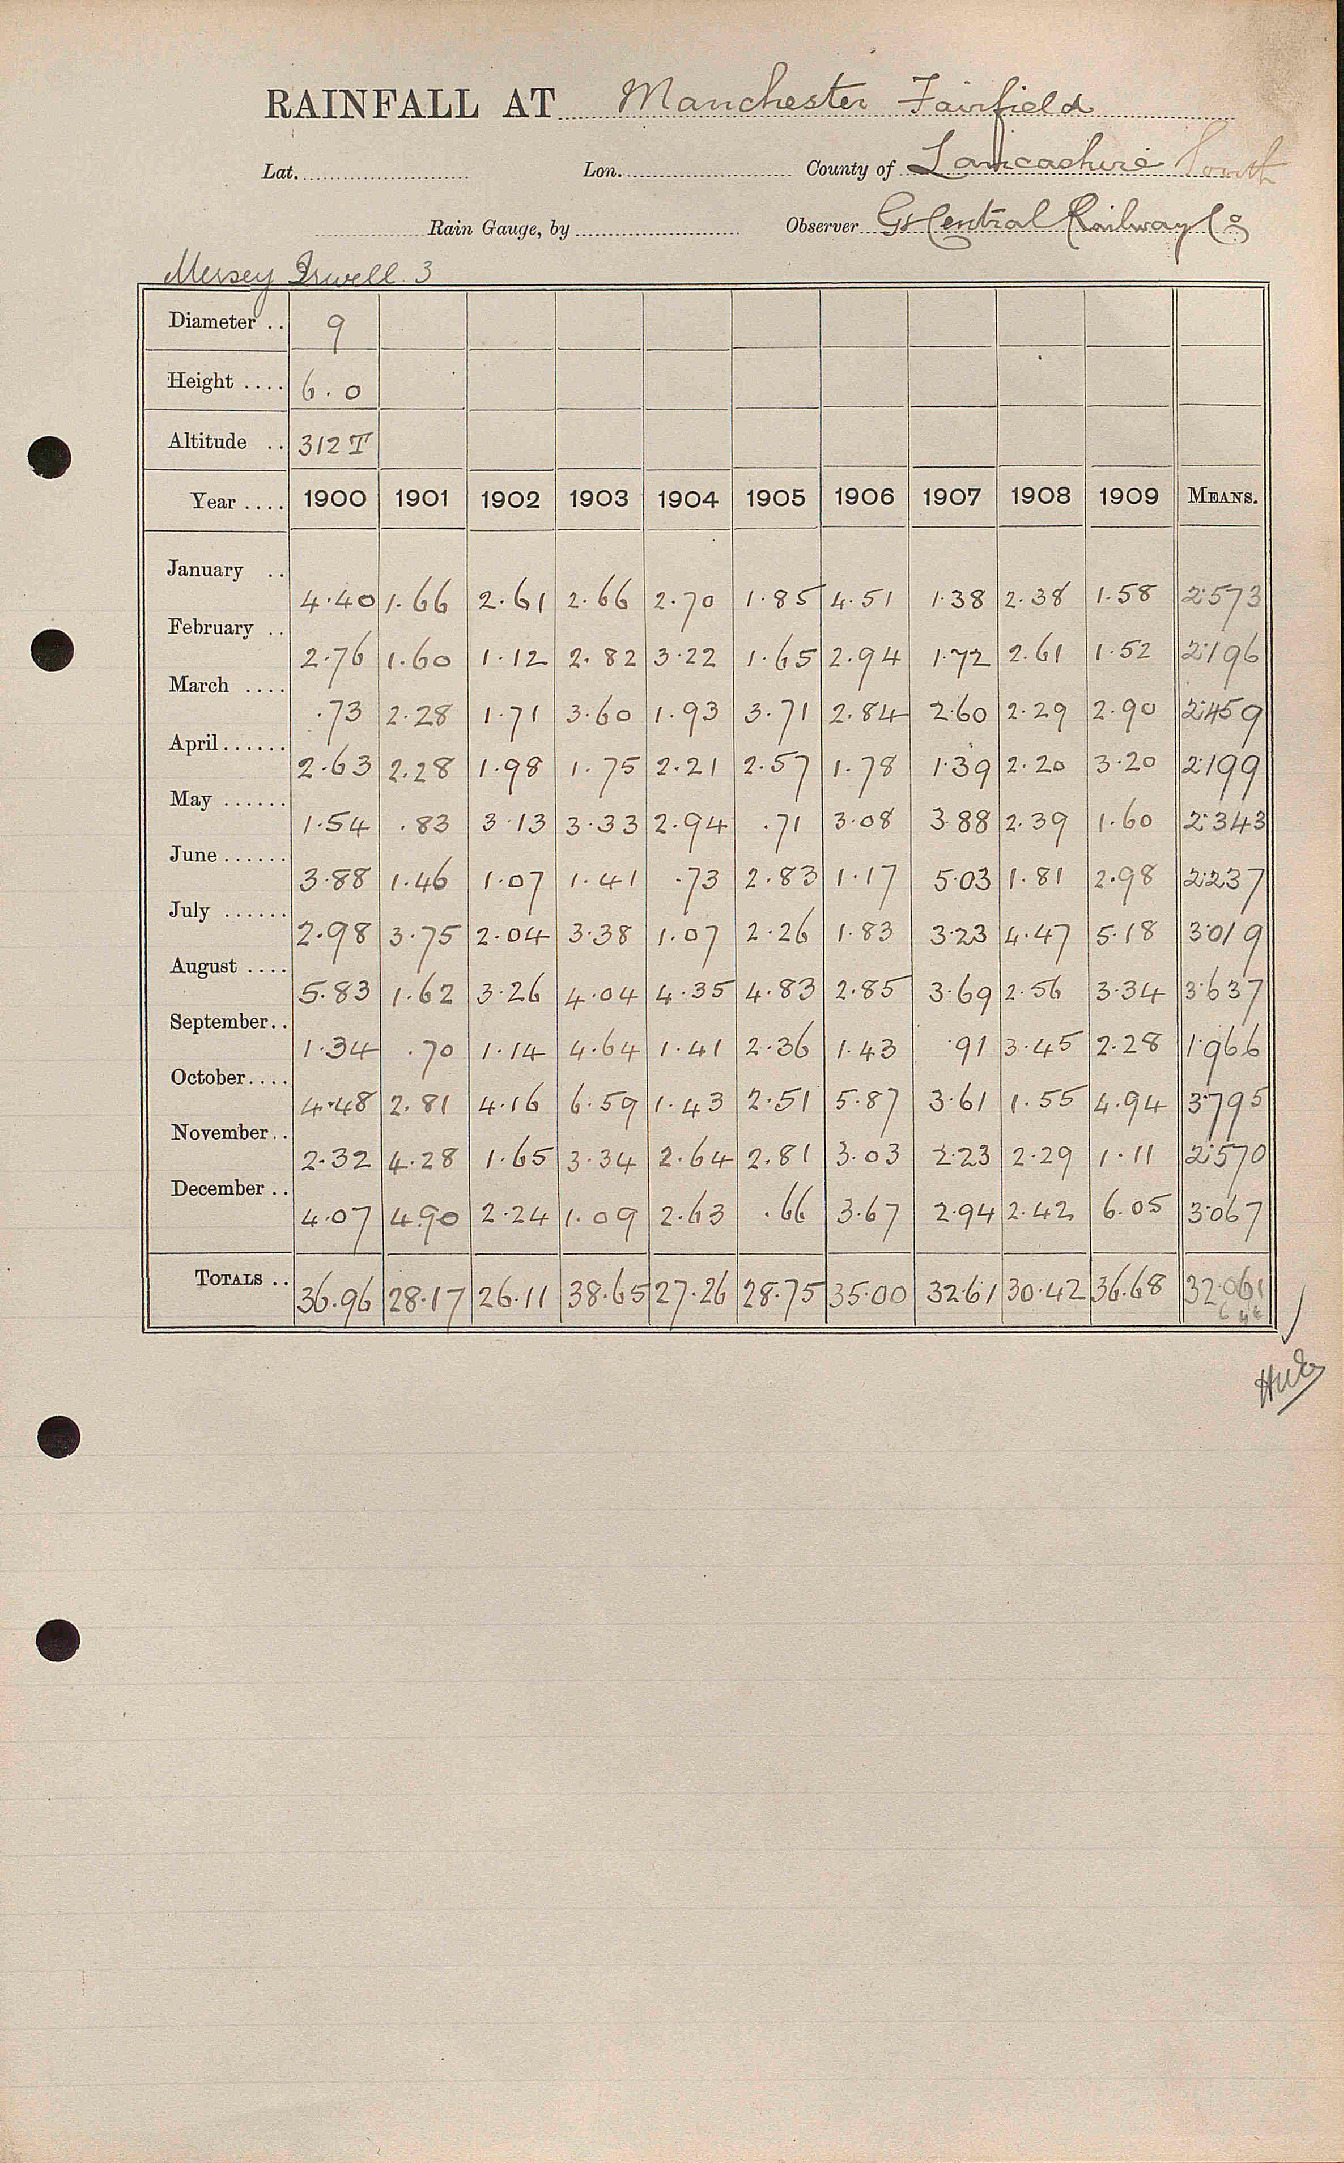 RAINFALL AT Manchester Fairfield
Lat. Lon. County of Lancashire South
Rain Gauge, by Observer Gt Central Railway Co
Mersey Irwell. 3
Diameter .. 9
Height .... 6.0
Altitude .. 312 T
Year .... 1900 1901 1902 1903 1904 1905 1906 1907 1908 1909 MEANS.
January .. 4.40 1.66 2.61 2.66 2.70 1.85 4.51 1.38 2.38 1.58 2.573
February .. 2.76 1.60 1.12 2.82 3.22 1.65 2.94 1.72 2.61 1.52 2.196
March .... .73 2.28 1.71 3.60 1.93 3.71 2.84 2.60 2.29 2.90 2.459
April ...... 2.63 2.28 1.98 1.75 2.21 2.57 1.78 1.39 2.20 3.20 2.199
May ...... 1.54 .83 3.13 3.33 2.94 .71 3.08 3.88 2.39 1.60 2.343
June ...... 3.88 1.46 1.07 1.41 .73 2.83 1.17 5.03 1.81 2.98 2.237
July ...... 2.98 3.75 2.04 3.38 1.07 2.26 1.83 3.23 4.47 5.18 3.019
August .... 5.83 1.62 3.26 4.04 4.35 4.83 2.85 3.69 2.56 3.34 3.637
September.. 1.34 .70 1.14 4.64 1.41 2.36 1.43 .91 3.45 2.28 1.966
October.... 4.48 2.81 4.16 6.59 1.43 2.51 5.87 3.61 1.55 4.94 3.795
November.. 2.32 4.28 1.65 3.34 2.64 2.81 3.03 2.23 2.29 1.11 2.570
December .. 4.07 4.90 2.24 1.09 2.63 .66 3.67 2.94 2.42 6.05 3.067
TOTALS .. 36.96 28.17 26.11 38.65 27.26 28.75 35.00 32.61 30.42 36.68 32.061